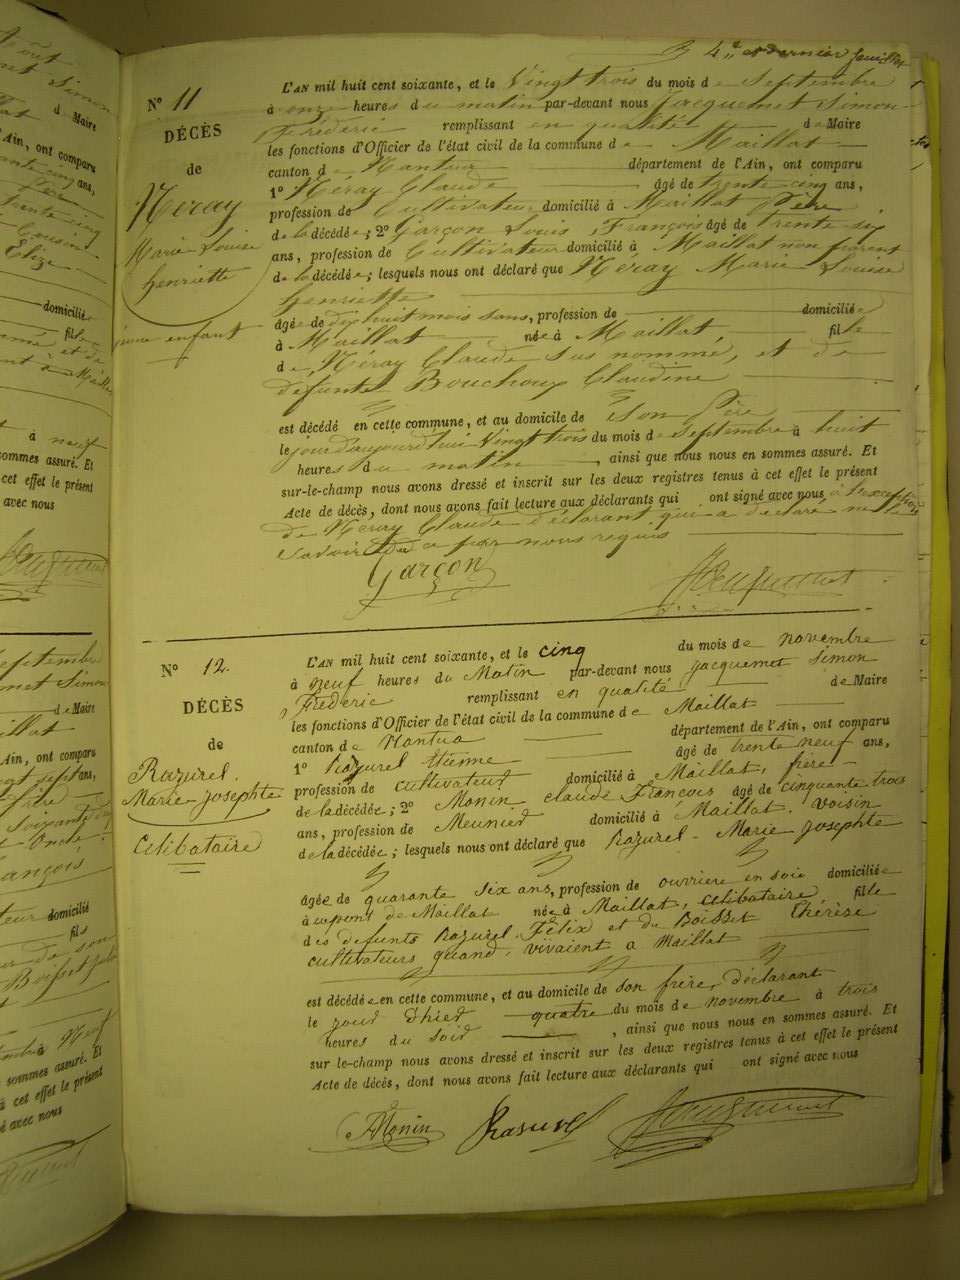 4e et dernier feuillet
No 11
DÉCÈS
de
Néray
Marie Louise
henriette
jeune enfant
L'AN mil huit cent soixante, et le Vingt trois du mois de Septembre
à onze heures du matin par-devant nous Jacquemet Simon
Fréderic remplissant en qualité de Maire
les fonctions d'Officier de l'état civil de la commune de Maillat
canton de Nantua département de l'Ain, ont comparu
1° Néray Claude âgé de trente cinq ans,
profession de Cultivateur domicilié à Maillat Père
de la décédée; 2° Garçon Louis François âgé de trente six
ans, profession de Cultivateur domicilié à Maillat non parent
de la décédée; lesquels nous ont déclaré que Néray Marie Louise
henriette
âgée de dix huit mois sans, profession de domicilié
à Maillat née à Maillat, fille
de Néray Claude sus nommé, et de
défunte Bouchoux Claudine
est décédé en cette commune, et au domicile de son Père
le jour d'aujourd'hui Vingt trois du mois de Septembre à huit
heures du matin, ainsi que nous nous en sommes assuré. Et
sur-le-champ nous avons dressé et inscrit sur les deux registres tenus à cet effet le présent
Acte de décès, dont nous avons fait lecture aux déclarants qui ont signé avec nous à l'exception
de Néray Claude déclarant qui a déclaré ne le
savoir de ce par nous requis
Garçon
No 12.
DÉCÈS
de
Razurel.
Marie Josephte
Célibataire
L'AN mil huit cent soixante, et le cinq du mois de novembre
à neuf heures du Matin par-devant nous jacquemet Simon
Fréderic remplissant en qualité de Maire
les fonctions d'Officier de l'état civil de la commune de Maillat
canton de Nantua département de l'Ain, ont comparu
1° Razurel Etienne âgé de trente neuf ans,
profession de cultivateur domicilié à Maillat, frère
de la décédée; 2° Monin claude François âgé de cinquante trois
ans, profession de Meunier domicilié à Maillat. Voisin
de la décédée; lesquels nous ont déclaré que Razurel. Marie Josephte
âgée de quarante six ans, profession de ouvrière en soie domiciliée
à upont de Maillat née à Maillat, célibataire fille
des defunts Razurel Félix et du Boisset Thérèse
cultivateurs quand, vivaient a Maillat
est décédée en cette commune, et au domicile de son frère, déclarant
le jour d'hier quatre du mois de novembre à trois
heures du soir, ainsi que nous nous en sommes assuré. Et
sur le-champ nous avons dressé et inscrit sur les deux registres tenus à cet effet le présent
Acte de décès, dont nous avons fait lecture aux déclarants qui ont signé avec nous
Monin Rasurel